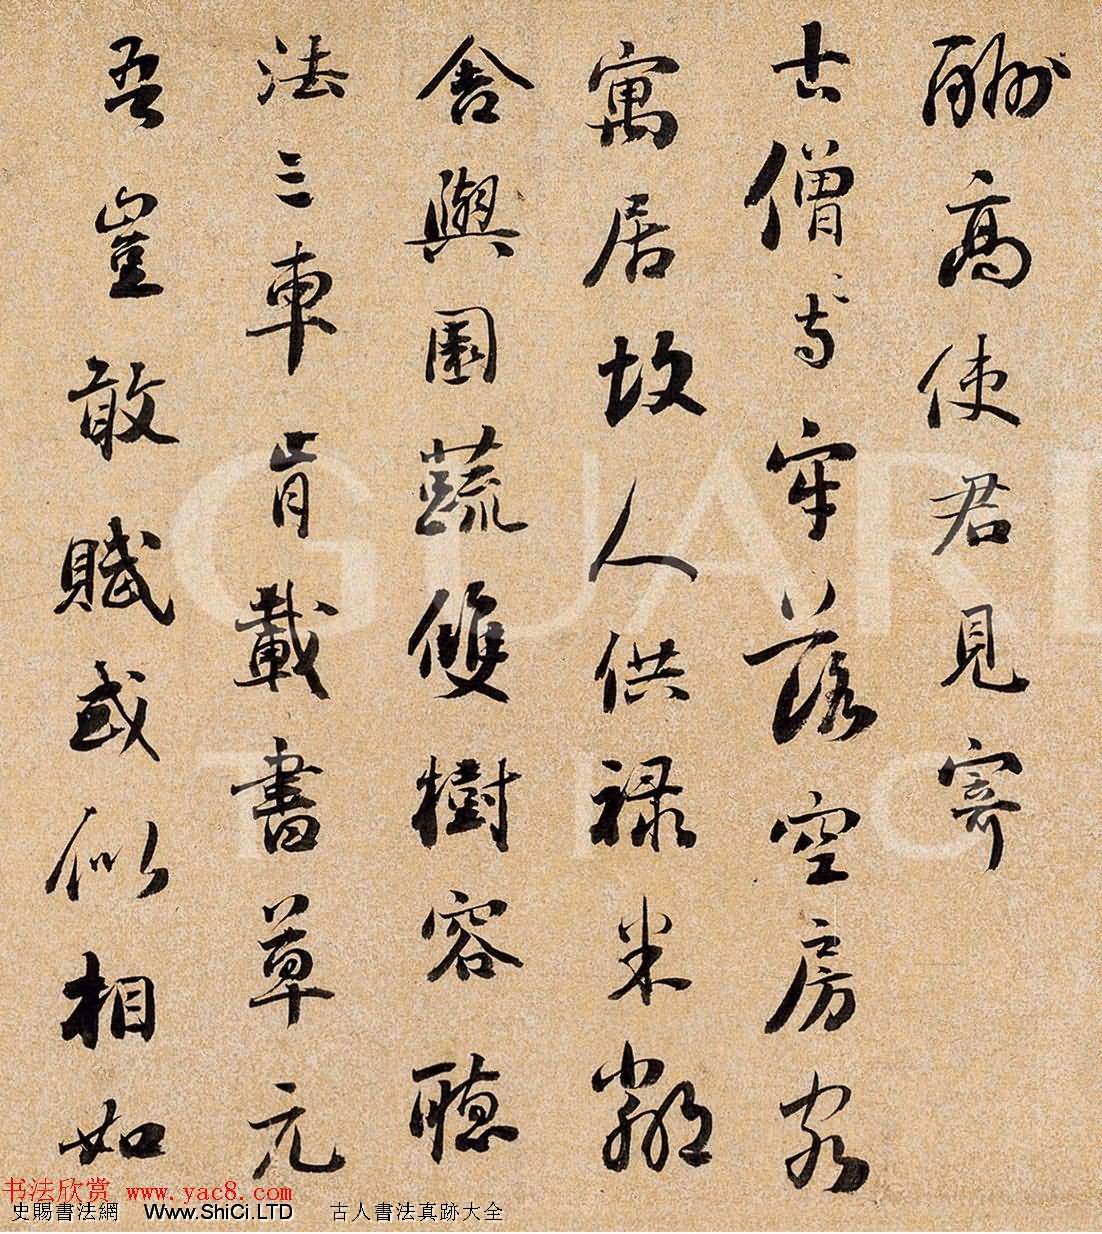 酬高使君見寄
古僧寺牢落空房客
寓居故人供禄米鄰
舍與園蔬雙樹容聽
法三車肯載書草元
吾豈敢賦或似相如
GUARD
书法欣赏 www.yac8.com
史賜書法網 Www.ShiCi.LTD 古人書法真跡大全